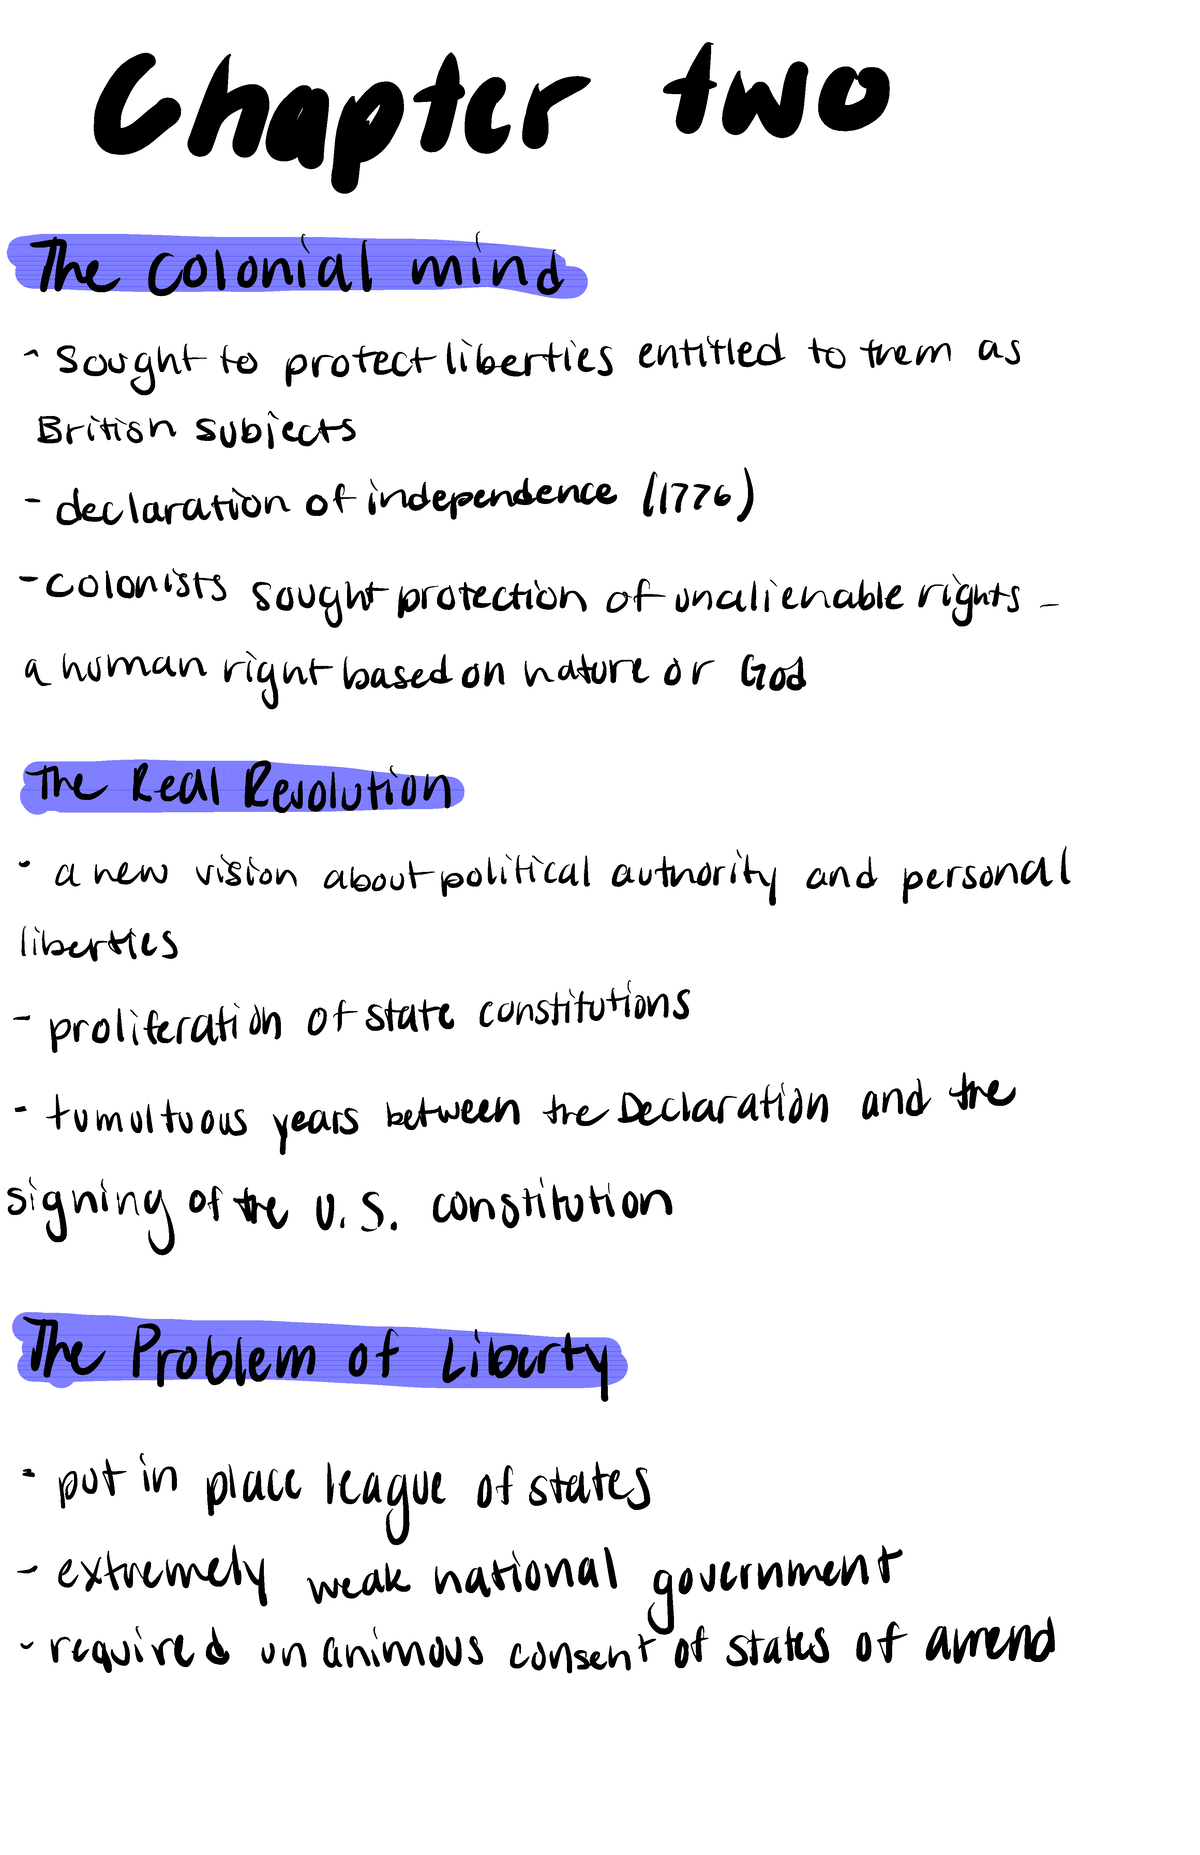 Chapter two
The colonial mind
- Sought to protect liberties entitled to them as
British subjects
- declaration of independence (1776)
- colonists sought protection of unalienable rights -
a human right based on nature or God
The Real Revolution
- a new vision about political authority and personal
liberties
- proliferation of state constitutions
- tumultuous years between the Declaration and the
signing of the U.S. constitution
The Problem of Liberty
- put in place league of states
- extremely weak national government
- required unanimous consent of states of amend